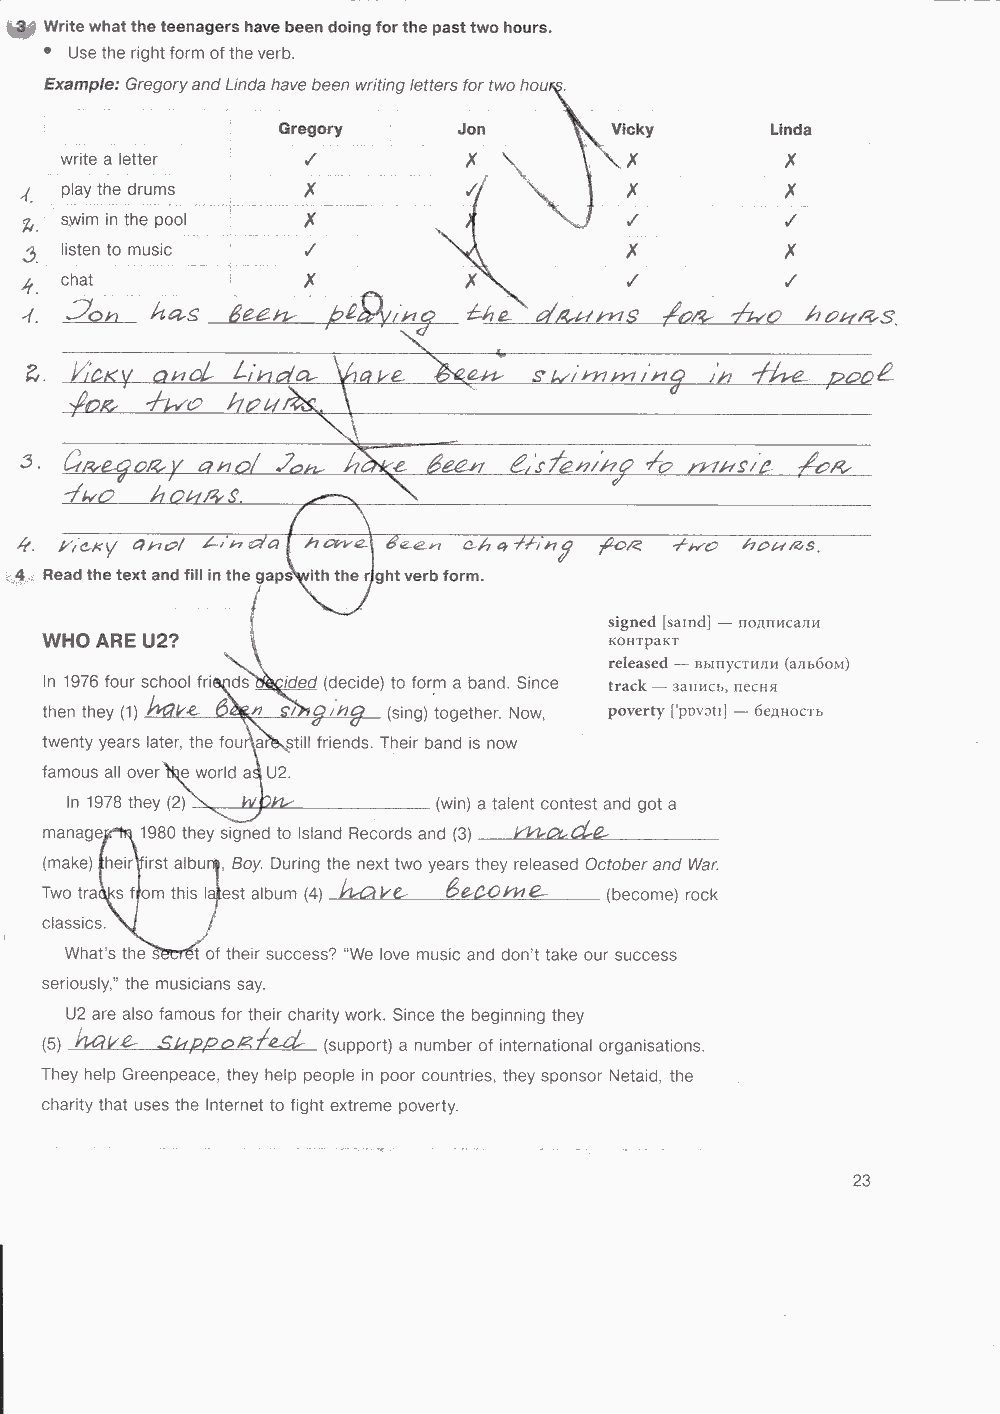 3 Write what the teenagers have been doing for the past two hours.
• Use the right form of the verb.
Example: Gregory and Linda have been writing letters for two hours.
Gregory Jon Vicky Linda
write a letter ✓ ✗ ✗ ✗
1. play the drums ✗ ✓ ✗ ✗
2. swim in the pool ✗ ✗ ✓ ✓
3. listen to music ✓ ✓ ✗ ✗
4. chat ✗ ✗ ✓ ✓
1. Jon has been playing the drums for two hours.
2. Vicky and Linda have been swimming in the pool
for two hours.
3. Gregory and Jon have been listening to music for
two hours.
4. Vicky and Linda have been chatting for two hours.
4 Read the text and fill in the gaps with the right verb form.
WHO ARE U2?
In 1976 four school friends decided (decide) to form a band. Since
then they (1) have been singing (sing) together. Now,
twenty years later, the four are still friends. Their band is now
famous all over the world as U2.
In 1978 they (2) won (win) a talent contest and got a
manager. In 1980 they signed to Island Records and (3) made
(make) their first album, Boy. During the next two years they released October and War.
Two tracks from this latest album (4) have become (become) rock
classics.
What's the secret of their success? “We love music and don't take our success
seriously,” the musicians say.
U2 are also famous for their charity work. Since the beginning they
(5) have supported (support) a number of international organisations.
They help Greenpeace, they help people in poor countries, they sponsor Netaid, the
charity that uses the Internet to fight extreme poverty.
signed [saınd] — подписали
контракт
released — выпустили (альбом)
track — запись, песня
poverty ['pɒvətı] — бедность
23